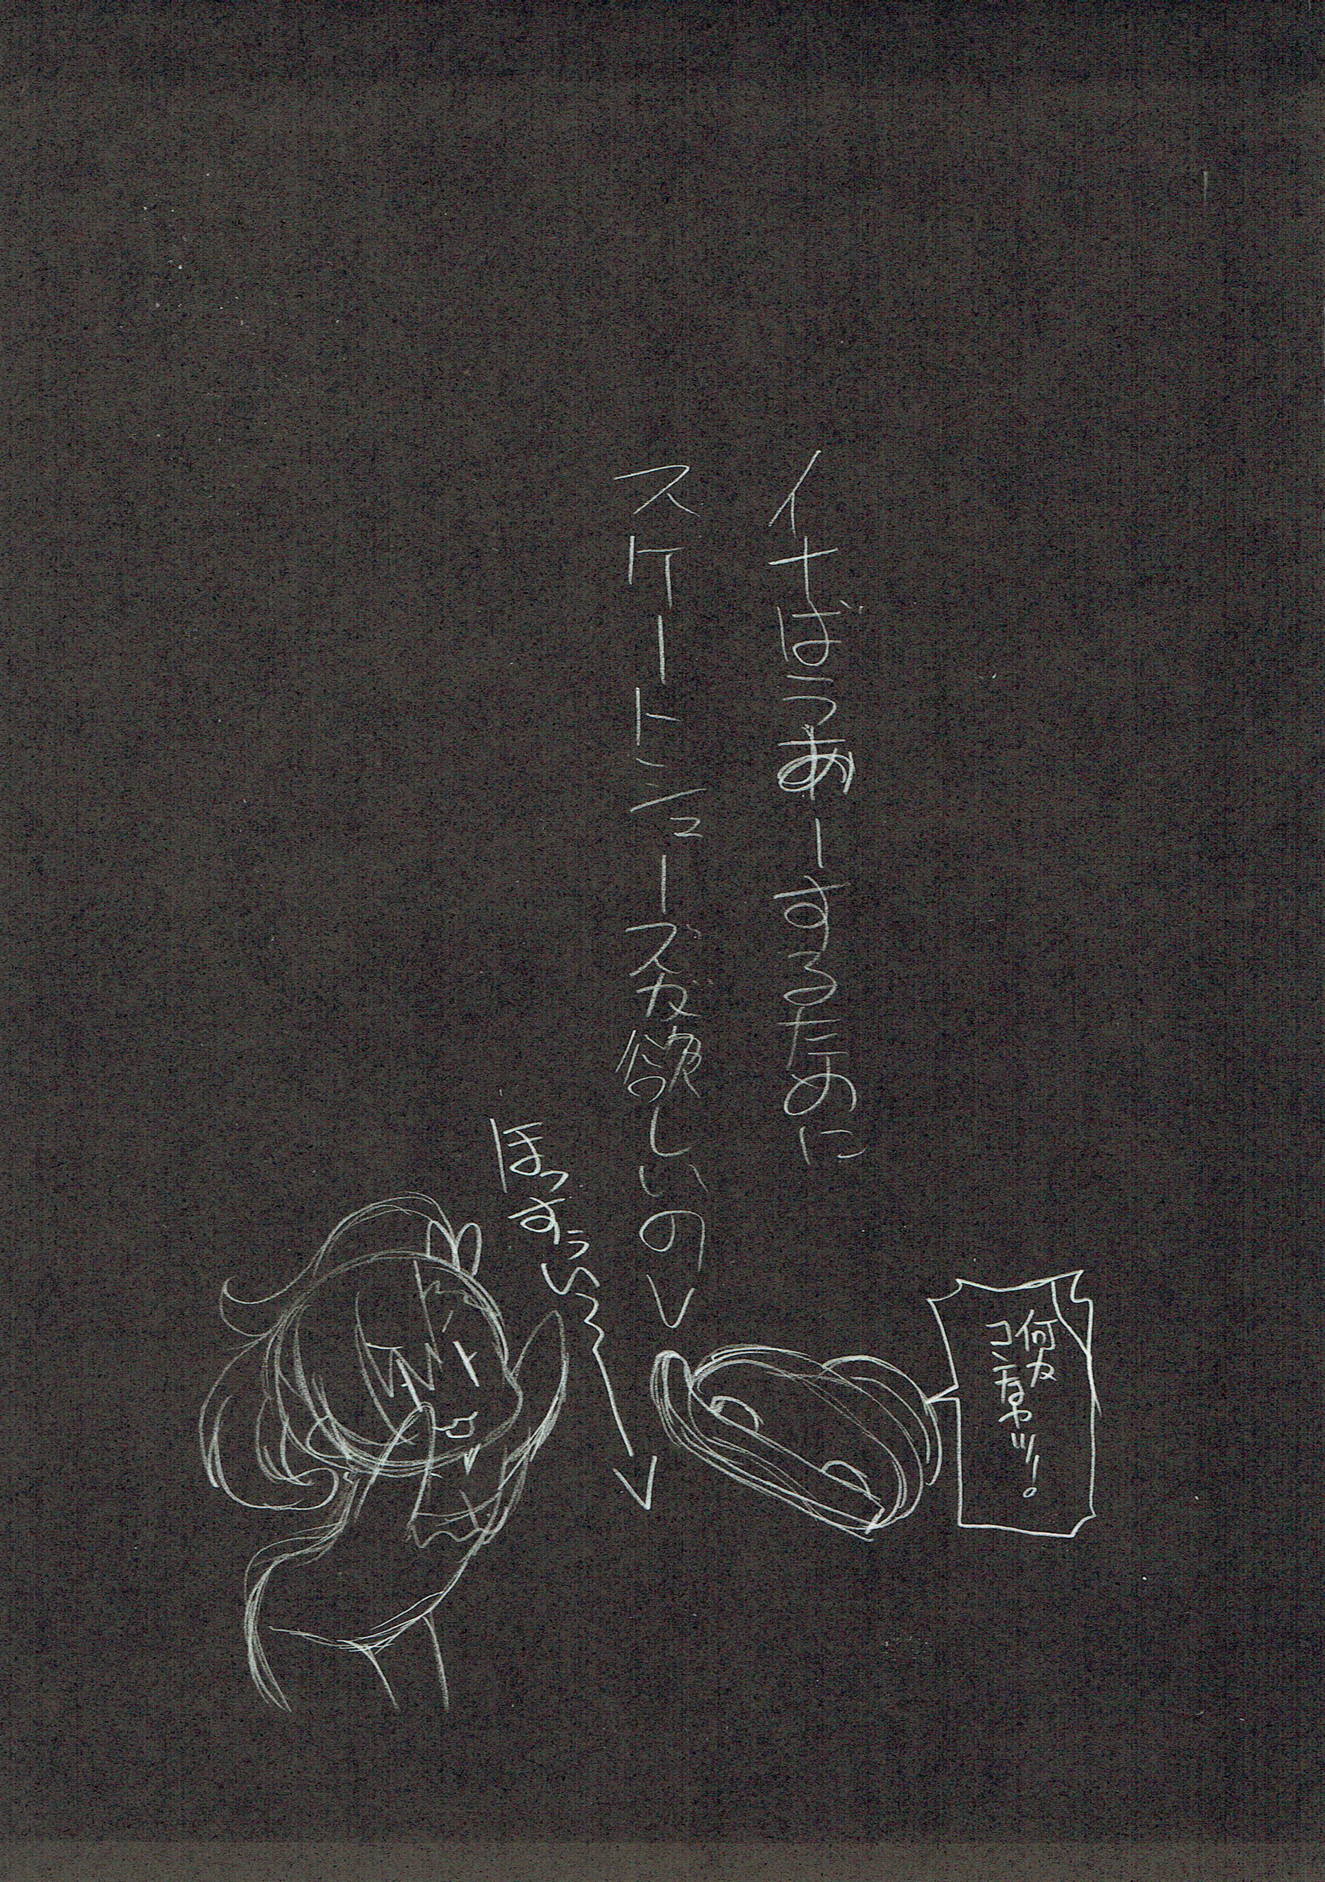 イナばうあーするために
スケートシューズが欲しいの
ほっすぅい〜
何か
コンなヤツ！。